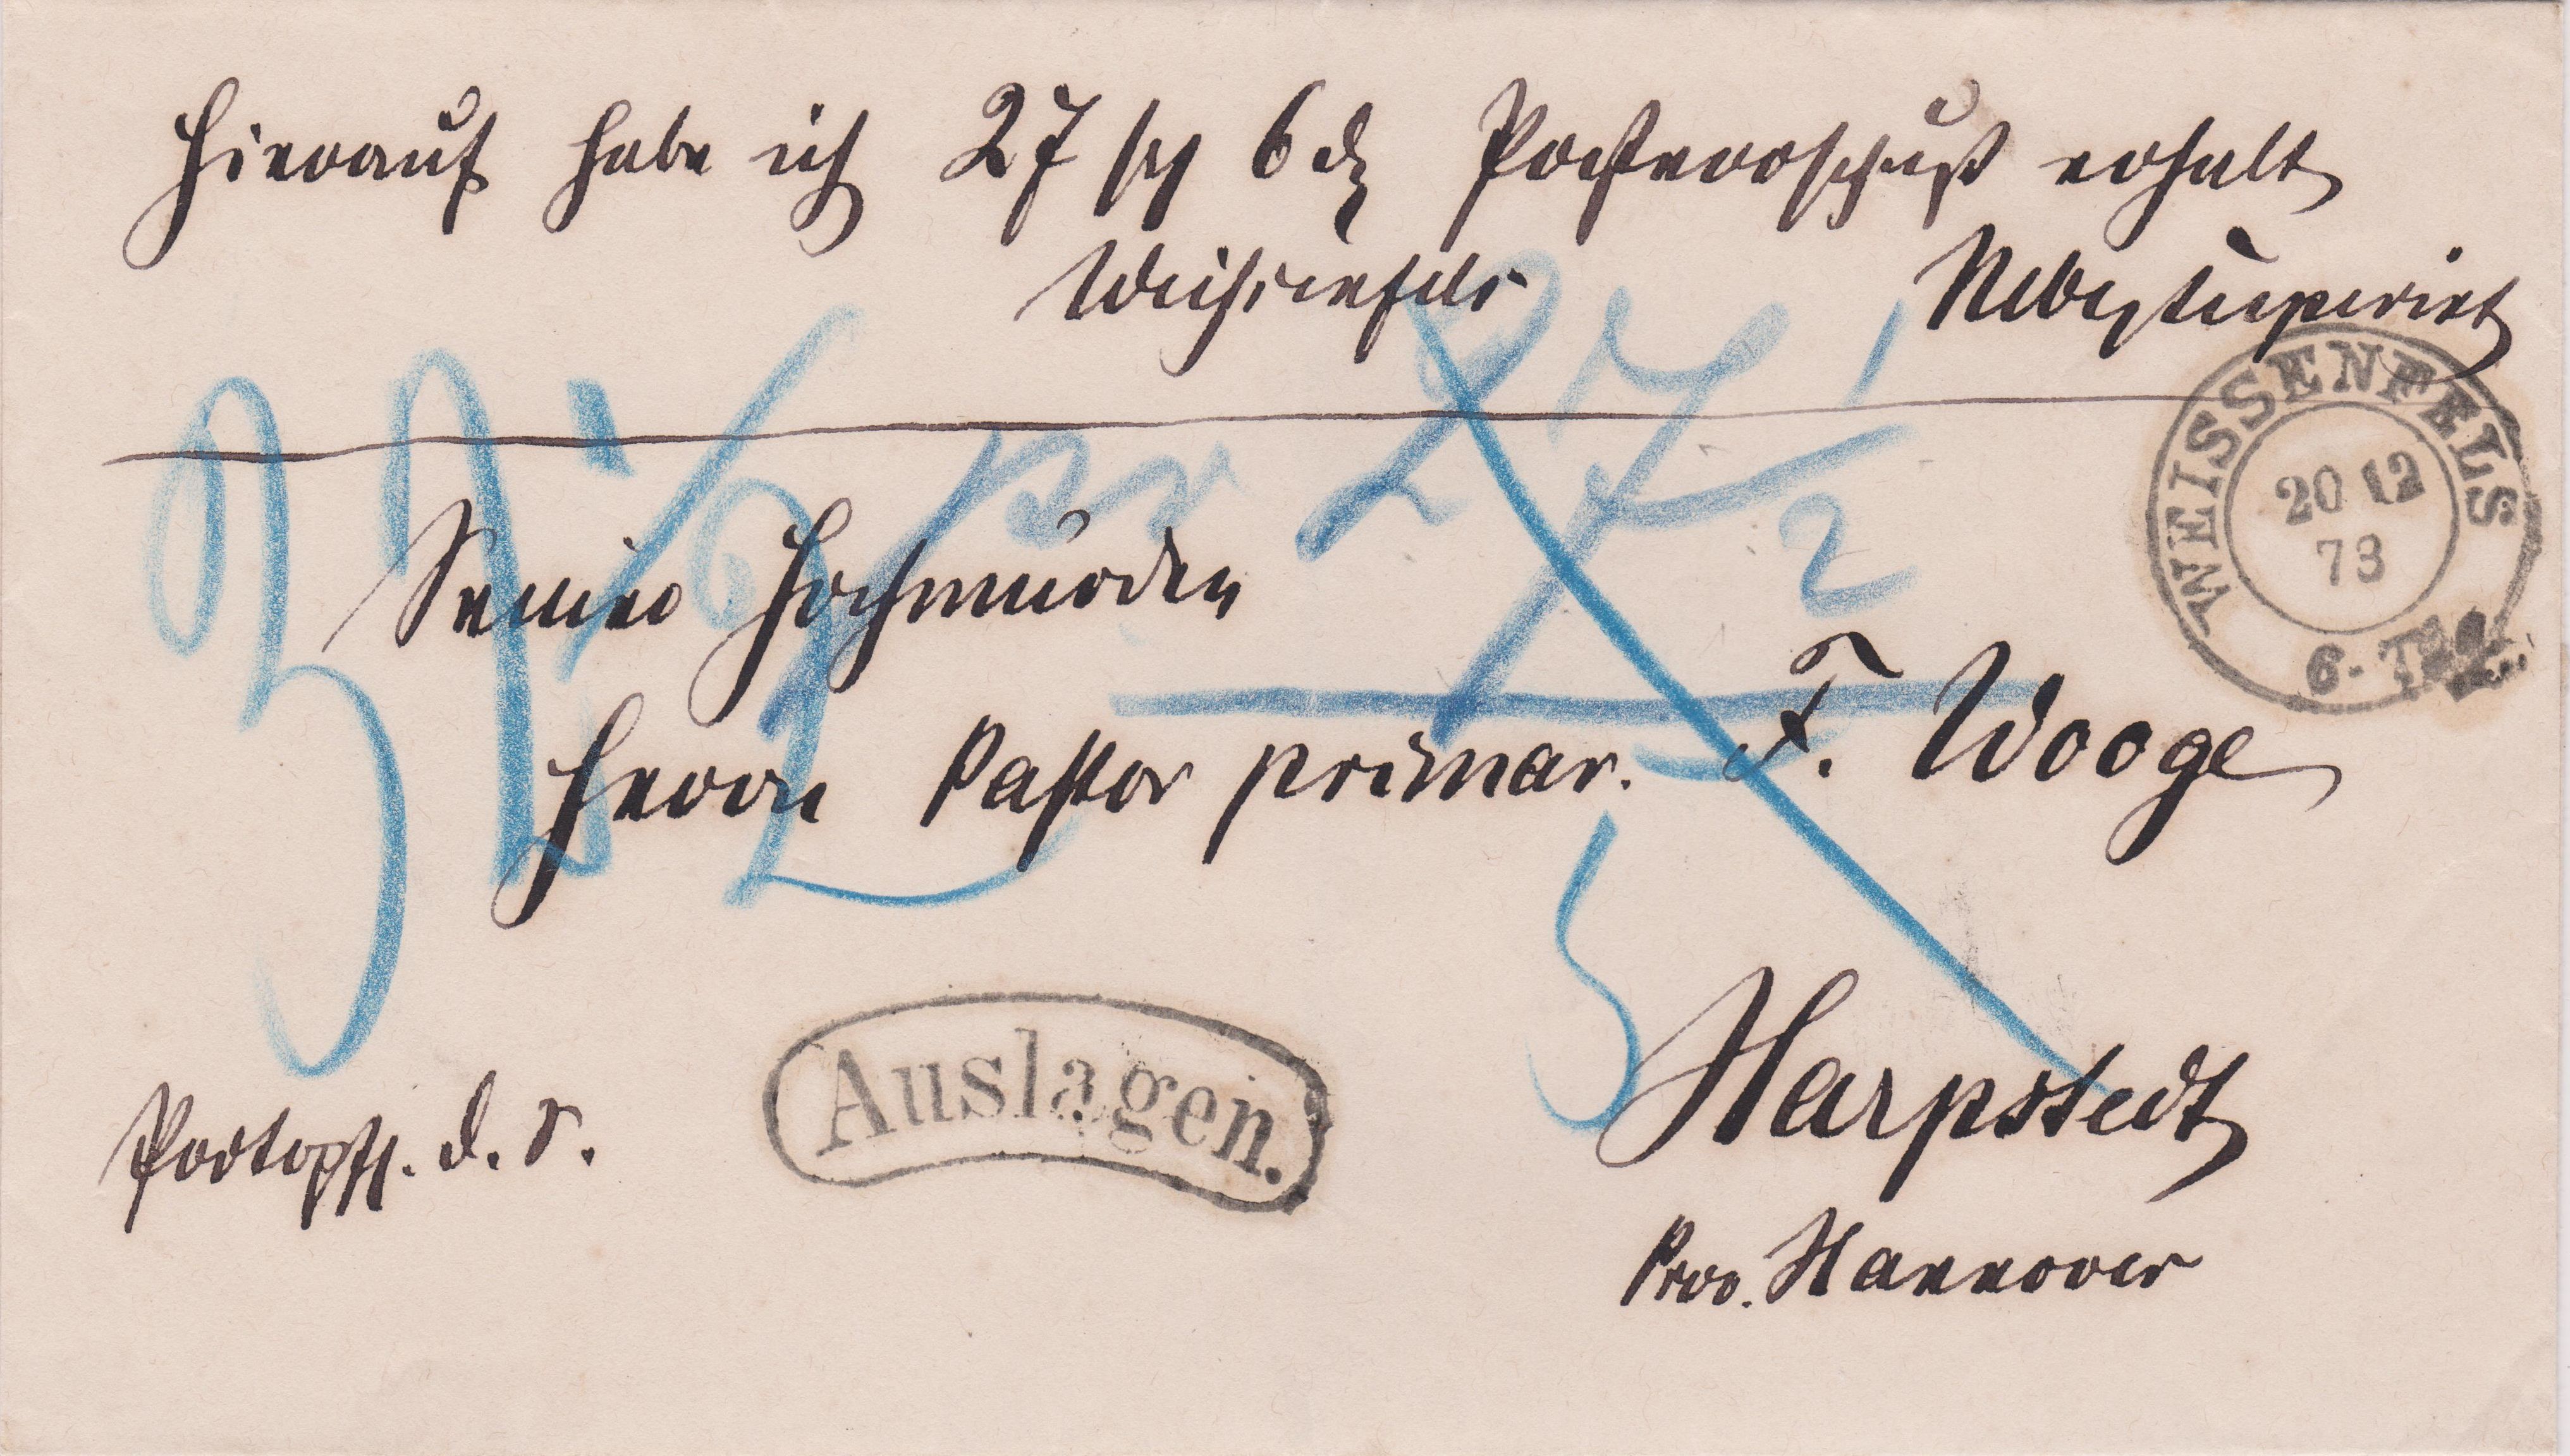 Hierauf habe ich 27 sg 6 d Postvorschuß erhalt
Weißenfels
WEISSENFELS
20 12
73
6-7
32 1/2
27 1/2
5
Seiner Hochwürden
Herrn Pastor primar. F. Wooge
Auslagen.
Harpstedt
Portopfl. d. S.
Prov. Hannover